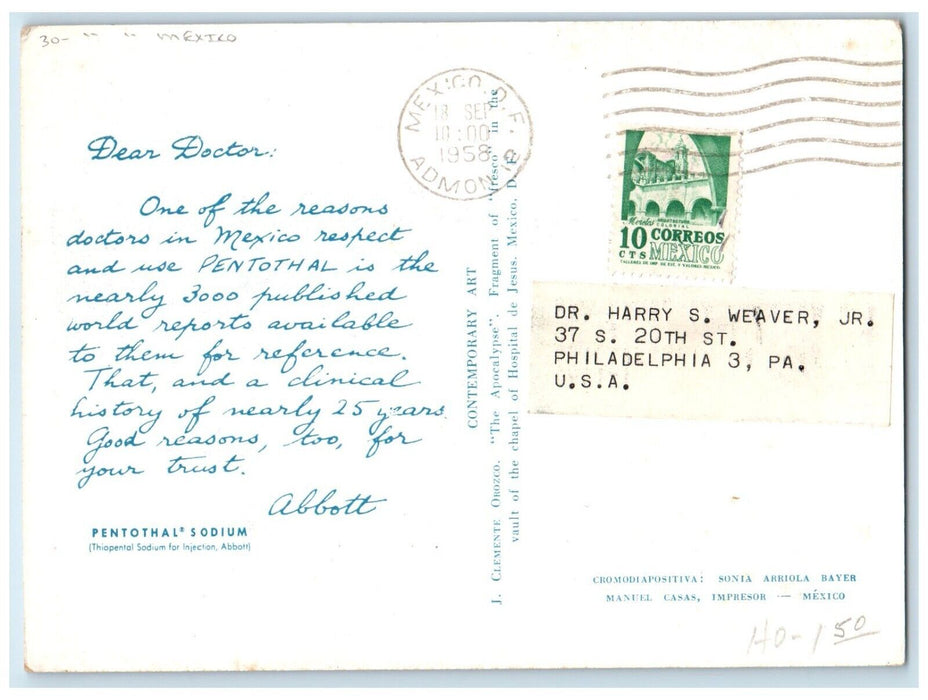 30- " " MEXICO
Dear Doctor:
One of the reasons
doctors in Mexico respect
and use PENTOTHAL is the
nearly 3000 published
world reports available
to them for reference.
That, and a clinical
history of nearly 25 years.
Good reasons, too, for
your trust.
Abbott
PENTOTHAL® SODIUM
(Thiopental Sodium for Injection, Abbott)
CONTEMPORARY ART
J. CLEMENTE OROZCO. "The Apocalypse". Fragment of "fresco" in the
vault of the chapel of Hospital de Jesus. Mexico, D. F.
MEXICO, D.F.
18 SEP
18:00
1958
ADMON
Morelos ARQUITECTURA
COLONIAL
10 CORREOS
CTS MEXICO
TALLERES DE IMP. DE EST. Y VALORES-MEXICO
DR. HARRY S. WEAVER, JR.
37 S. 20TH ST.
PHILADELPHIA 3, PA.
U.S.A.
CROMODIAPOSITIVA: SONIA ARRIOLA BAYER
MANUEL CASAS, IMPRESOR — MÉXICO
HO-150